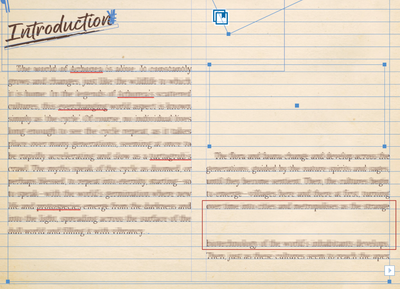 Introduction
The world of is alive. It constantly
grows and changes, just like the wildlife to which
it is home. In the legends of scattered
cultures, this everchanging world aspect is known
simply as 'the cycle'. Of course, no individual lives
long enough to see the cycle repeat, as it takes
place over many generations, seeming at times to
be rapidly accelerating and slow as a
crawl. The myths speak of the cycle as haunted, or
perhaps blessed, to repeat into eternity, starting so
to speak, with the world's germination where new
life and emerge from the darkness and
into the light, spreading across the surface of the
full world and filling it with vibrancy.
The flora and fauna change and develop across the
generations, guided by the nature spirits and sages
until they become sentient. Then, the cultures begin
to emerge villages here and there at first, turning
over time into cities and metropolises as the strange
biotechnology of the world's inhabitants develops.
Then, just as these cultures seem to reach the apex